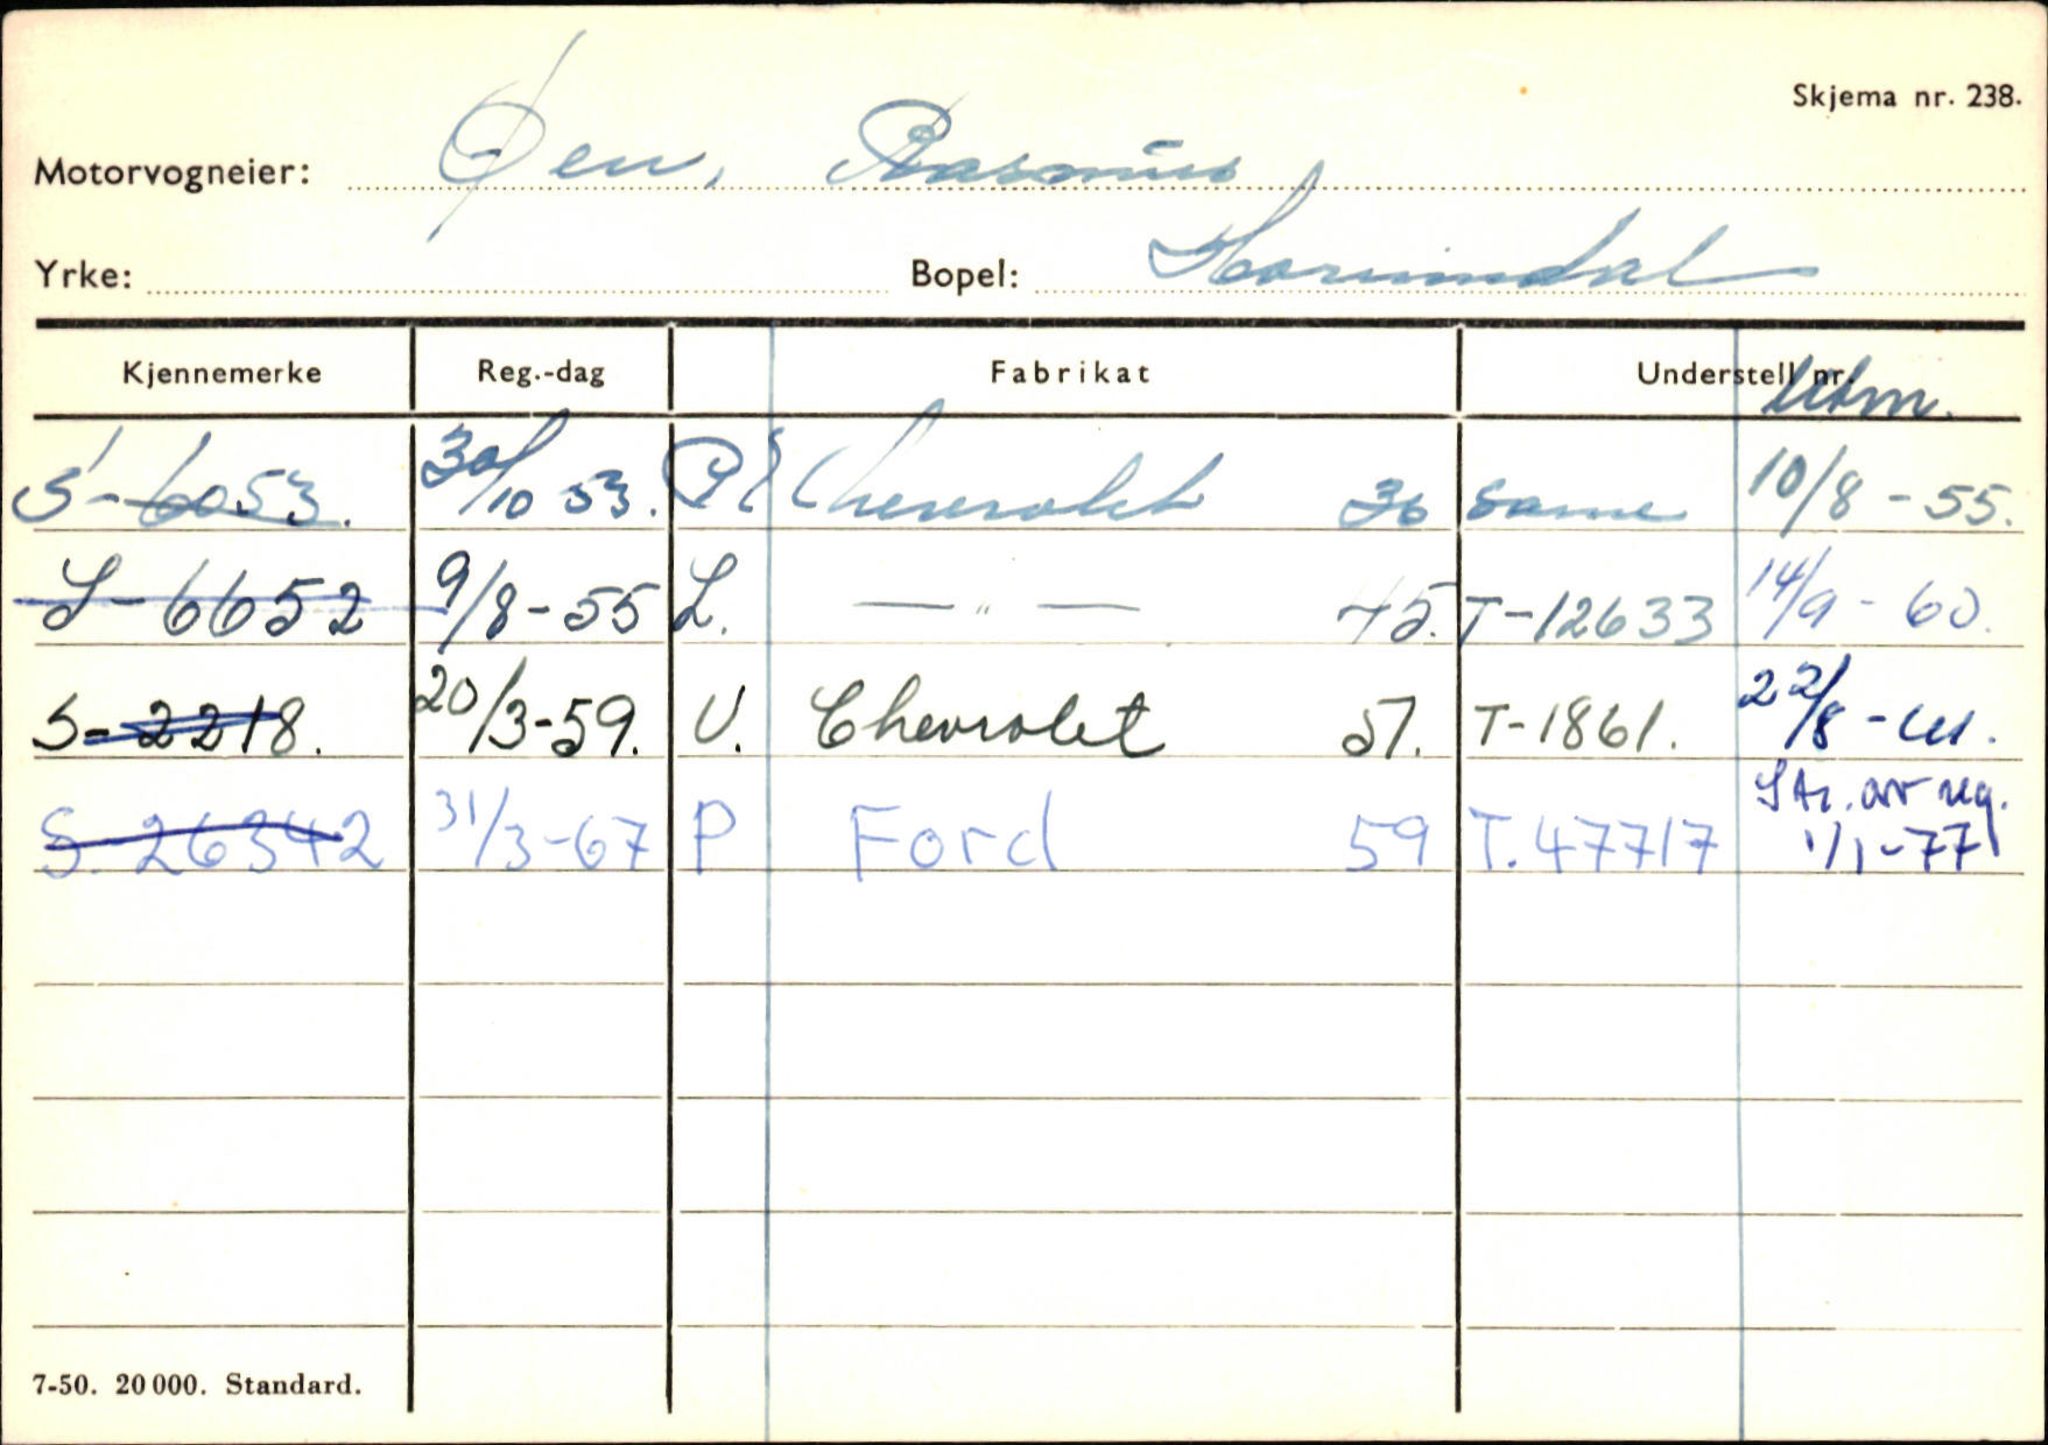 Skjema nr. 238.
Motorvogneier: Øen, Rasmus
Yrke: Bopel: Hornindal
Kjennemerke Reg.-dag Fabrikat Understell nr. Uom.
S-6053. 30/10 53. P Chevrolet 36 same 10/8 - 55.
S-6652 9/8-55 L. —"— 45. T-12633 14/9 - 60.
S-2218. 20/3-59. V. Chevrolet 51. T-1861. 22/8 -
Str. av reg.
S. 26342 31/3-67 P Ford 59 T. 47717 1/1-77
7-50. 20 000. Standard.